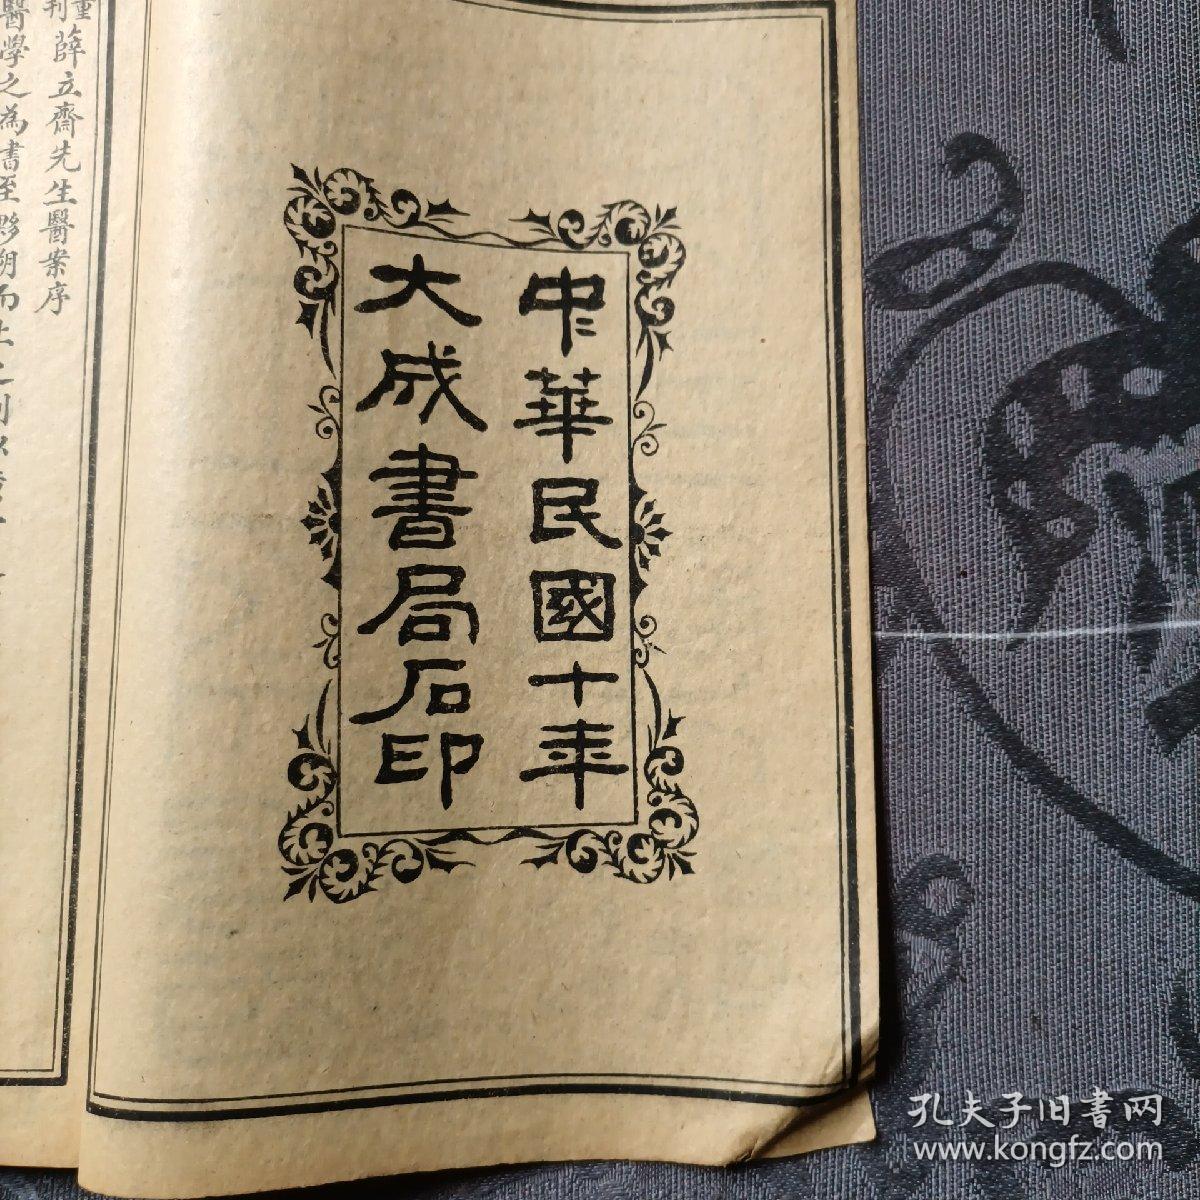 中華民國十年
大成書局石印
重刊薛立齋先生醫案序
醫學之為書至夥朔而上之則
孔夫子旧書网
www.kongfz.com